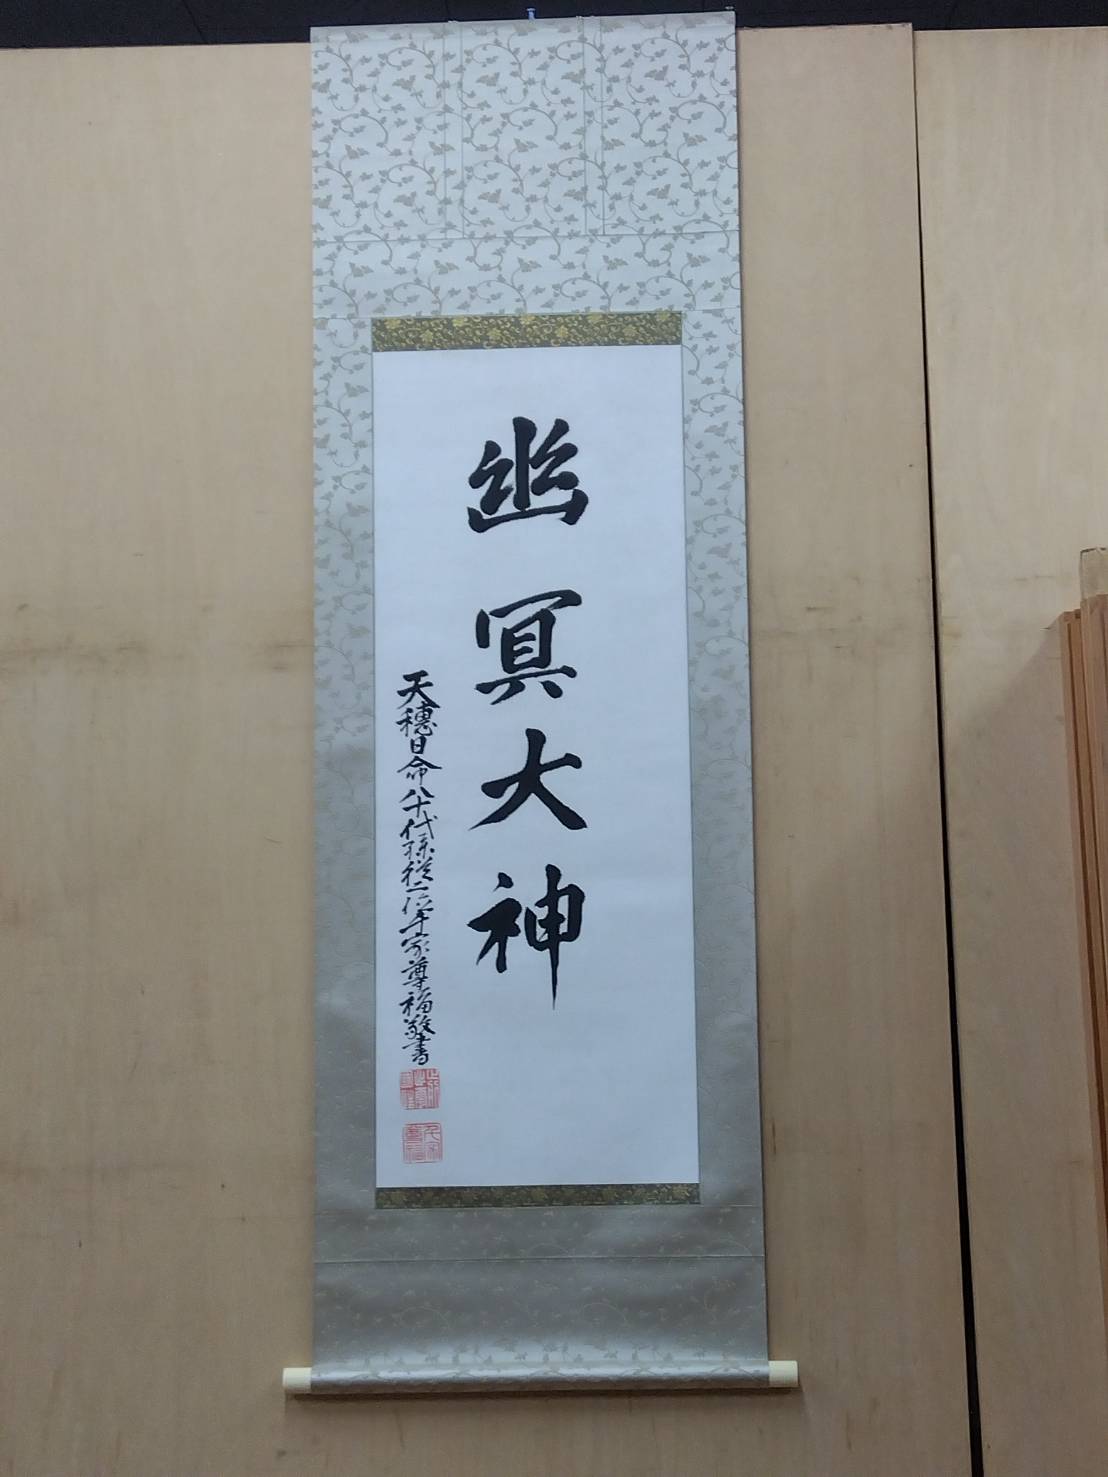 幽冥大神
天穂日命八十代孫従二位千家尊福敬書